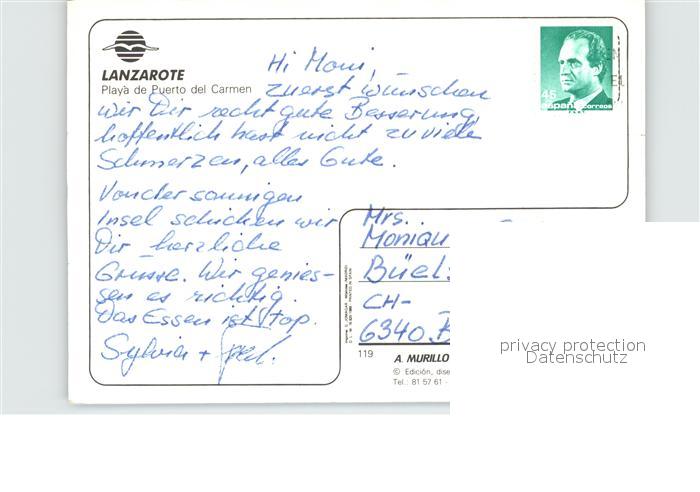 LANZAROTE
Playa de Puerto del Carmen
Hi Moni,
zuerst wünschen
wir Dir recht gute Besserung,
hoffentlich hast nicht zu viele
Schmerzen, alles Gute.
Von der sonnigen
Insel schicken wir
Dir herzliche
Grüsse. Wir genies-
sen es richtig.
Das Essen ist Top.
Sylvia +
45
españa correos
Mrs.
Moniqu
Büel
CH-
6340
119
A. MURILLO
© Edición, dise
Tel.: 81 57 61 -
privacy protection
Datenschutz